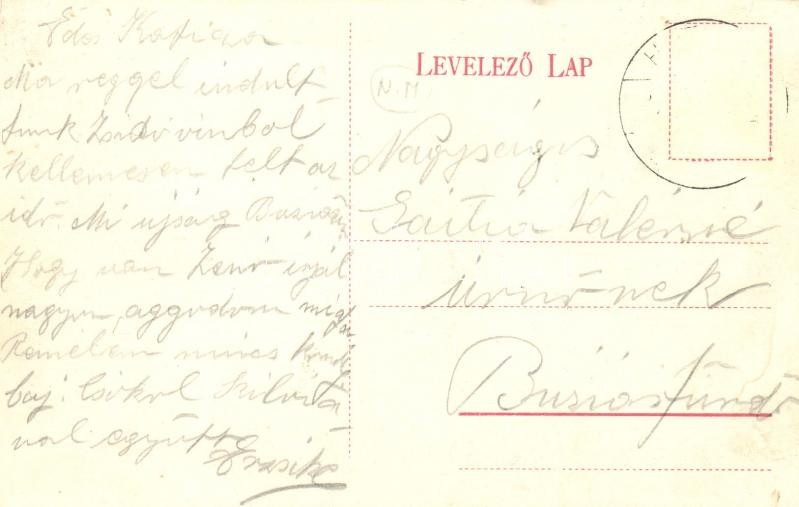 Édes Katica
Ma reggel indult
tunk Zsidóvinból
kellemesen telt az
idő. Mi ujság Buziáson
Hogy van Zenó irjál
nagyon aggodom
Remélem nincs komoly
baj. Csókol Szilviá
val együtt
Erzsike
LEVELEZŐ LAP
N.M
Nagyságos
Valérné
úrnőnek
Buziásfürdő